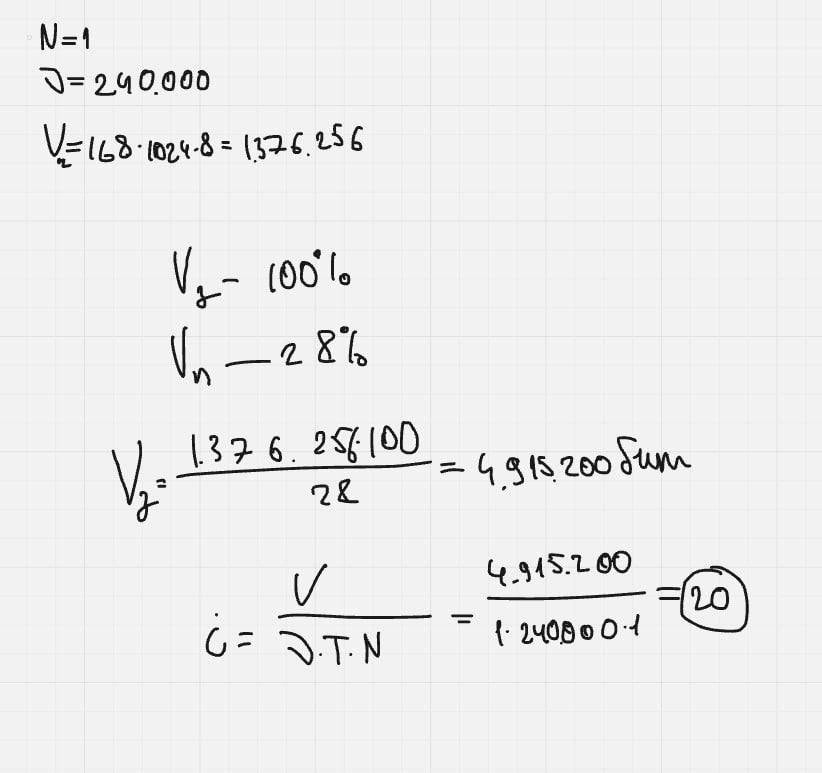 N=1
D=240.000
V₂=168·1024·8=1.376.256
Vz - 100%
Vn — 28%
Vz = 1.376.256·100 / 28 = 4.915.200 бит
i = V / D·T·N = 4.915.200 / 1·240.000·1 = 20